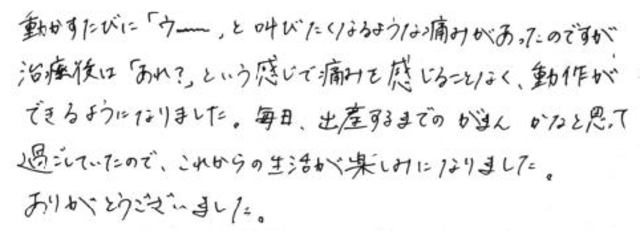 動かすたびに「ウー」と叫びたくなるような痛みがあったのですが
治療後は「あれ?」という感じで痛みを感じることなく、動作が
できるようになりました。毎日、出産するまでのがまんかなと思って
過ごしていたので、これからの生活が楽しみになりました。
ありがとうございました。